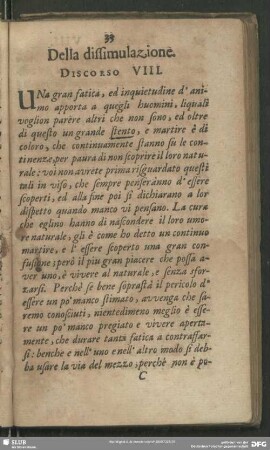 39
Della dissimulazione.
DISCORSO VIII.
UNa gran fatica, ed inquietudine d' ani-
mo apporta a quegli huomini, liquali
voglion parère altri che non sono, ed oltre
di questo un grande stento, e martire è di
coloro, che continuamente stanno su le con-
tinenze, per paura di non scoprire il loro natu-
rale: voi non avrete prima risguardato questi
tali in viso, che sempre penseránno d' essere
scoperti, ed alla fine poi si dichiarano a lor
dispetto quando manco vi pensano. La cura
che eglino hanno di nascondere il loro umo-
re naturale, gli è come ho detto un continuo
martire, e l' essere scoperto una gran con-
fusione; però il piu gran piacere che possa a-
ver uno, è vivere al naturale, e senza sfor-
zarsi. Perchè se bene soprastà il pericolo d'
essere un po' manco stimato, avvenga che sa-
remo conosciuti, nientedimeno meglio è esse-
re un po' manco pregiato e vivere aperta-
mente, che durare tanta fatica a contraffar-
si: benche e nell' uno e nell' altro modo si deb-
ba usare la via del mezzo, perchè non è po-
C
SLUB
DFG